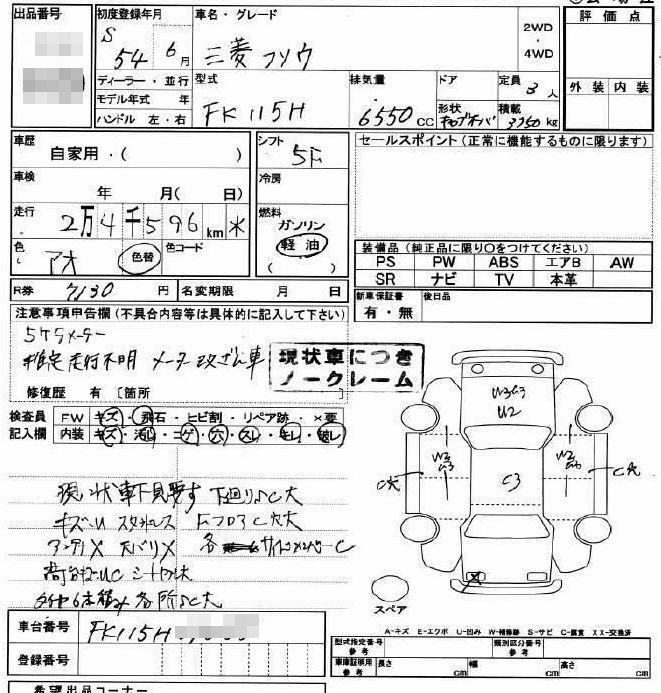 出品番号 初度登録年月 車名・グレード 2WD・4WD 評価点
S 54 6月 三菱 フソウ
ディーラー・並行 型式 排気量 ドア 定員 3人 外装 内装
モデル年式 年
ハンドル 左・右 FK115H 6550CC 形状 積載 3250kg
車歴 自家用・( ) シフト 5F セールスポイント(正常に機能するものに限ります)
車検 年 月( 日) 冷房
走行 2万4千596km 燃料 ガソリン
色 アオ 色替 色コード 軽油
( ) 装備品(純正品に限り○をつけてください)
PS PW ABS エアB AW
SR ナビ TV 本革
R券 7130円 名変期限 月 日 新車保証書 有・無 後日品
注意事項申告欄(不具合内容等は具体的に記入して下さい)
5ケタメーター
推定走行不明 メーター改ざん車
現状車につき
ノークレーム
修復歴 有 [箇所
検査員 FW キズ・飛石・ヒビ割・リペア跡・×要
記入欄 内装 キズ・汚レ・コゲ・穴・スレ・キレ・破レ
U3C3
U2
C3
C穴
C穴
現状車下見要す 下廻りSC大
キズ・U フロアC穴大
アンテナX 各 サイドメンバーC
各所SC大
スペア
車台番号 FK115H
登録番号
A-キズ E-エクボ U-凹み W-補修跡 S-サビ C-腐食 XX-交換済
型式指定番号 参考 類別区分番号 参考
車庫証明用 参考 長さ cm 幅 cm 高さ cm
希望出品コーナー